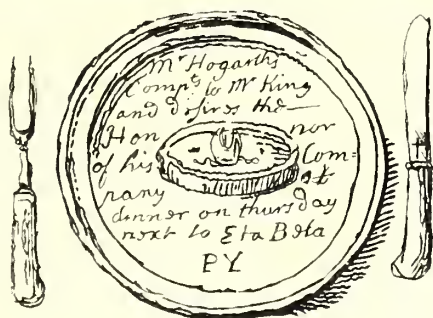 Mr Hogarth's
Comps to Mr King
and desires the
Hon nor
of his Com=
pany at
dinner on thursday
next to Eta Beta
PY